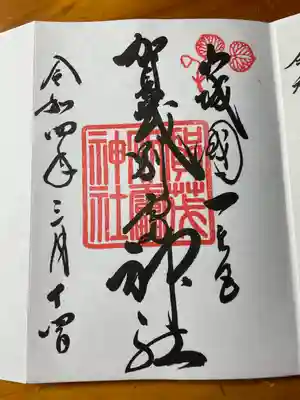 山城國一之宮
賀茂別雷神社
賀茂別雷神社
令和四年三月十四日